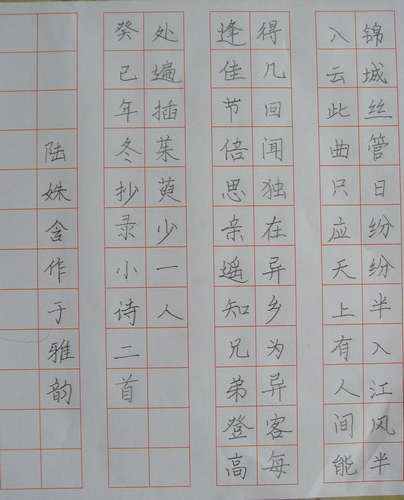 锦城丝管日纷纷半入江风半
入云此曲只应天上有人间能
得几回闻独在异乡为异客每
逢佳节倍思亲遥知兄弟登高
处遍插茱萸少一人
癸巳年冬抄录小诗二首
陆姝含作于雅韵